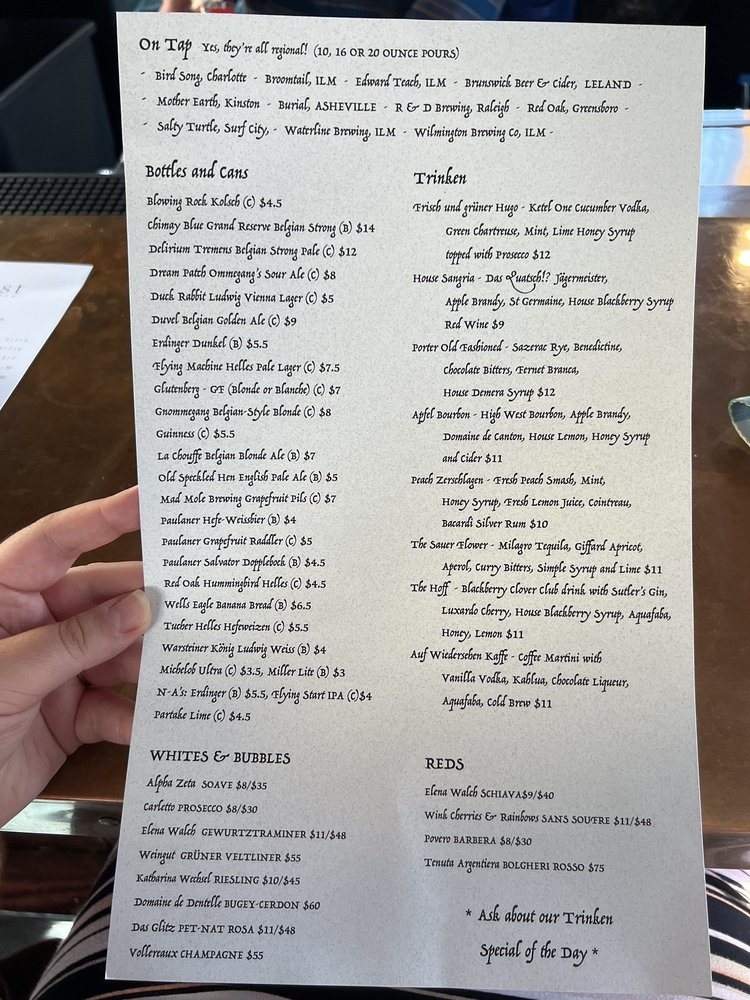 On Tap Yes, they're all regional! (10, 16 OR 20 OUNCE POURS)
- Bird Song, Charlotte - Broomtail, ILM - Edward Teach, ILM - Brunswick Beer & Cider, LELAND -
- Mother Earth, Kinston - Burial, ASHEVILLE - R & D Brewing, Raleigh - Red Oak, Greensboro -
- Salty Turtle, Surf City, - Waterline Brewing, ILM - Wilmington Brewing Co, ILM -
Bottles and Cans
Blowing Rock Kolsch (C) $4.5
Chimay Blue Grand Reserve Belgian Strong (B) $14
Delirium Tremens Belgian Strong Pale (C) $12
Dream Patch Ommegang's Sour Ale (C) $8
Duck Rabbit Ludwig Vienna Lager (C) $5
Duvel Belgian Golden Ale (C) $9
Erdinger Dunkel (B) $5.5
Flying Machine Helles Pale Lager (C) $7.5
Glutenberg - GF (Blonde or Blanche) (C) $7
Gnommegang Belgian-Style Blonde (C) $8
Guinness (C) $5.5
La Chouffe Belgian Blonde Ale (B) $7
Old Speckled Hen English Pale Ale (B) $5
Mad Mole Brewing Grapefruit Pils (C) $7
Paulaner Hefe-Weissbier (B) $4
Paulaner Grapefruit Raddler (C) $5
Paulaner Salvator Dopplebock (B) $4.5
Red Oak Hummingbird Helles (C) $4.5
Wells Eagle Banana Bread (B) $6.5
Tucher Helles Hefeweizen (C) $5.5
Warsteiner König Ludwig Weiss (B) $4
Michelob Ultra (C) $3.5, Miller Lite (B) $3
N-A's: Erdinger (B) $5.5, Flying Start IPA (C)$4
Partake Lime (C) $4.5
Trinken
Frisch und grüner Hugo - Ketel One Cucumber Vodka,
Green Chartreuse, Mint, Lime Honey Syrup
topped with Prosecco $12
House Sangria - Das Quatsch!? Jägermeister,
Apple Brandy, St Germaine, House Blackberry Syrup
Red Wine $9
Porter Old Fashioned - Sazerac Rye, Benedictine,
Chocolate Bitters, Fernet Branca,
House Demera Syrup $12
Apfel Bourbon - High West Bourbon, Apple Brandy,
Domaine de Canton, House Lemon, Honey Syrup
and Cider $11
Peach Zerschlagen - Fresh Peach Smash, Mint,
Honey Syrup, Fresh Lemon Juice, Cointreau,
Bacardi Silver Rum $10
The Sauer Flower - Milagro Tequila, Giffard Apricot,
Aperol, Curry Bitters, Simple Syrup and Lime $11
The Hoff - Blackberry Clover Club drink with Sutler's Gin,
Luxardo Cherry, House Blackberry Syrup, Aquafaba,
Honey, Lemon $11
Auf Wiedersehen Kaffe - Coffee Martini with
Vanilla Vodka, Kahlua, Chocolate Liqueur,
Aquafaba, Cold Brew $11
WHITES & BUBBLES
Alpha Zeta SOAVE $8/$35
Carletto PROSECCO $8/$30
Elena Walch GEWURTZTRAMINER $11/$48
Weingut GRÜNER VELTLINER $55
Katharina Wechsel RIESLING $10/$45
Domaine de Dentelle BUGEY-CERDON $60
Das Glitz PET-NAT ROSA $11/$48
Vollereaux CHAMPAGNE $55
REDS
Elena Walch SCHIAVA$9/$40
Wink Cherries & Rainbows SANS SOUFRE $11/$48
Povero BARBERA $8/$30
Tenuta Argentiera BOLGHERI ROSSO $75
* Ask about our Trinken
Special of the Day *